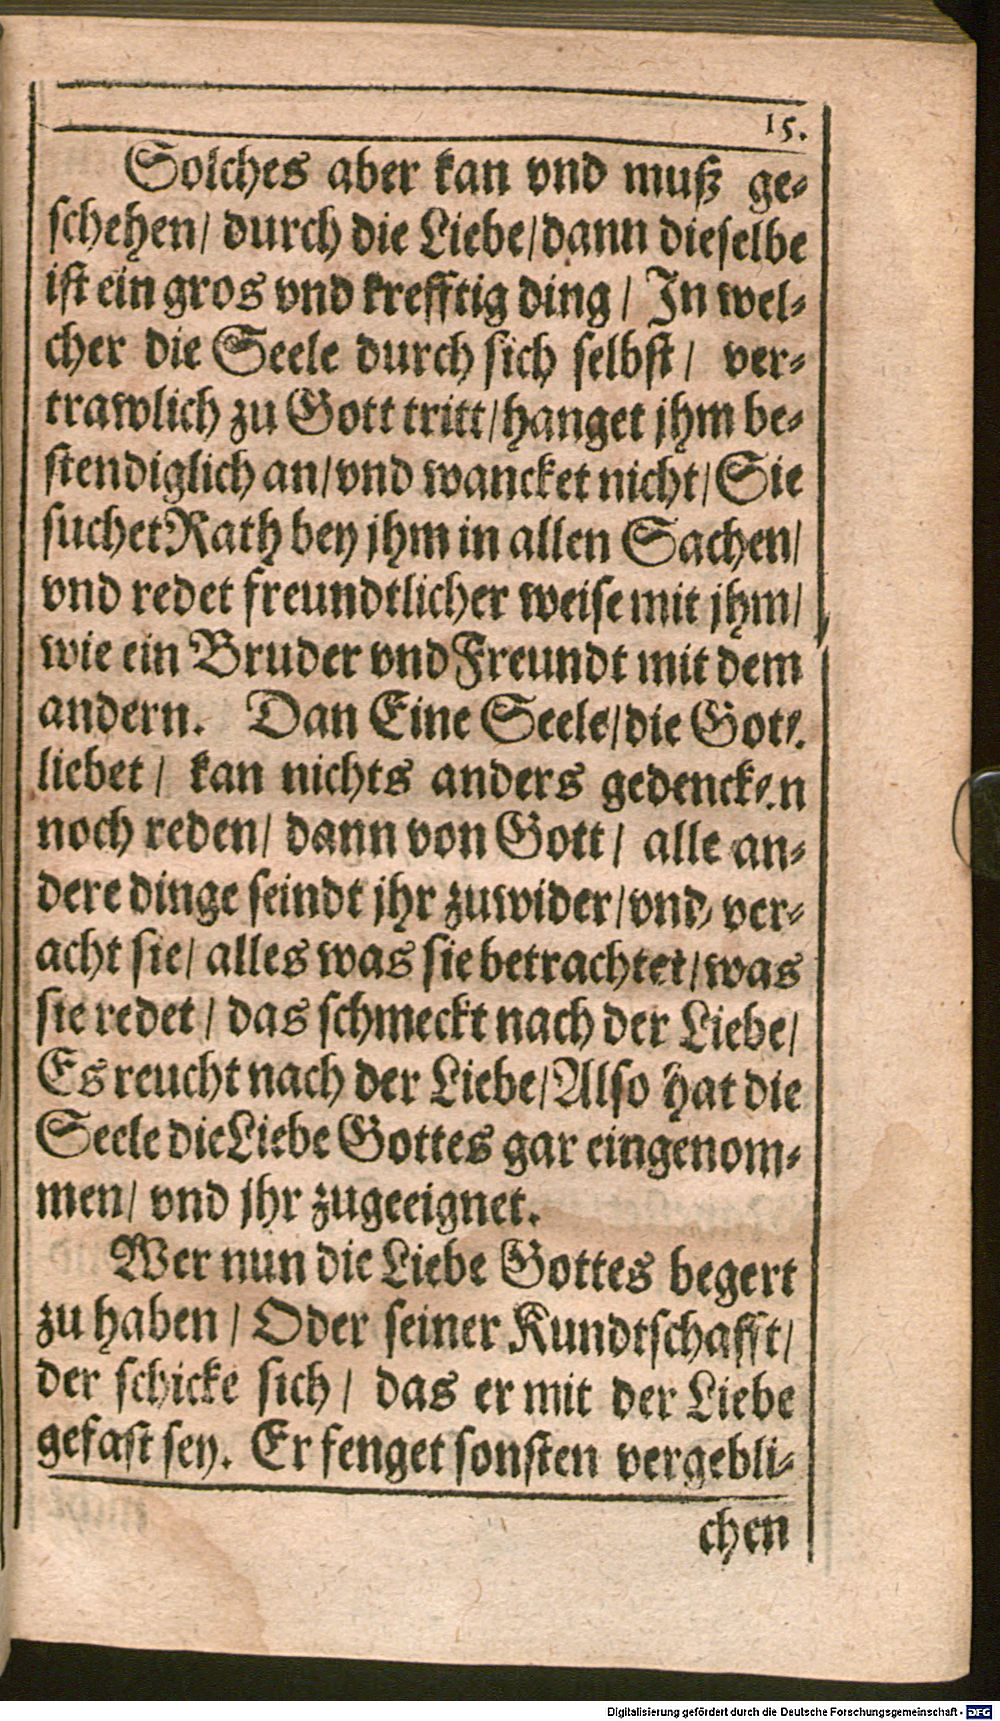 15.
Solches aber kan vnd muß ge-
schehen/ durch die Liebe/dann dieselbe
ist ein gros vnd krefftig ding / In wel-
cher die Seele durch sich selbst/ ver-
trawlich zu Gott tritt/hanget jhm be-
stendiglich an/vnd wancket nicht/Sie
suchet Rath bey jhm in allen Sachen/
vnd redet freundtlicher weise mit jhm/
wie ein Bruder vnd Freundt mit dem
andern. Dan Eine Seele/die Gott
liebet/ kan nichts anders gedencken
noch reden/ dann von Gott/ alle an-
dere dinge seindt jhr zuwider/vnd ver-
acht sie/ alles was sie betrachtet/was
sie redet/ das schmeckt nach der Liebe/
Es reucht nach der Liebe/Also hat die
Seele die Liebe Gottes gar eingenom-
men/ vnd jhr zugeeignet.
Wer nun die Liebe Gottes begert
zu haben/ Oder seiner Kundtschafft/
der schicke sich/ das er mit der Liebe
gefast sey. Er fenget sonsten vergebli-
chen
Digitalisierung gefördert durch die Deutsche Forschungsgemeinschaft - DFG